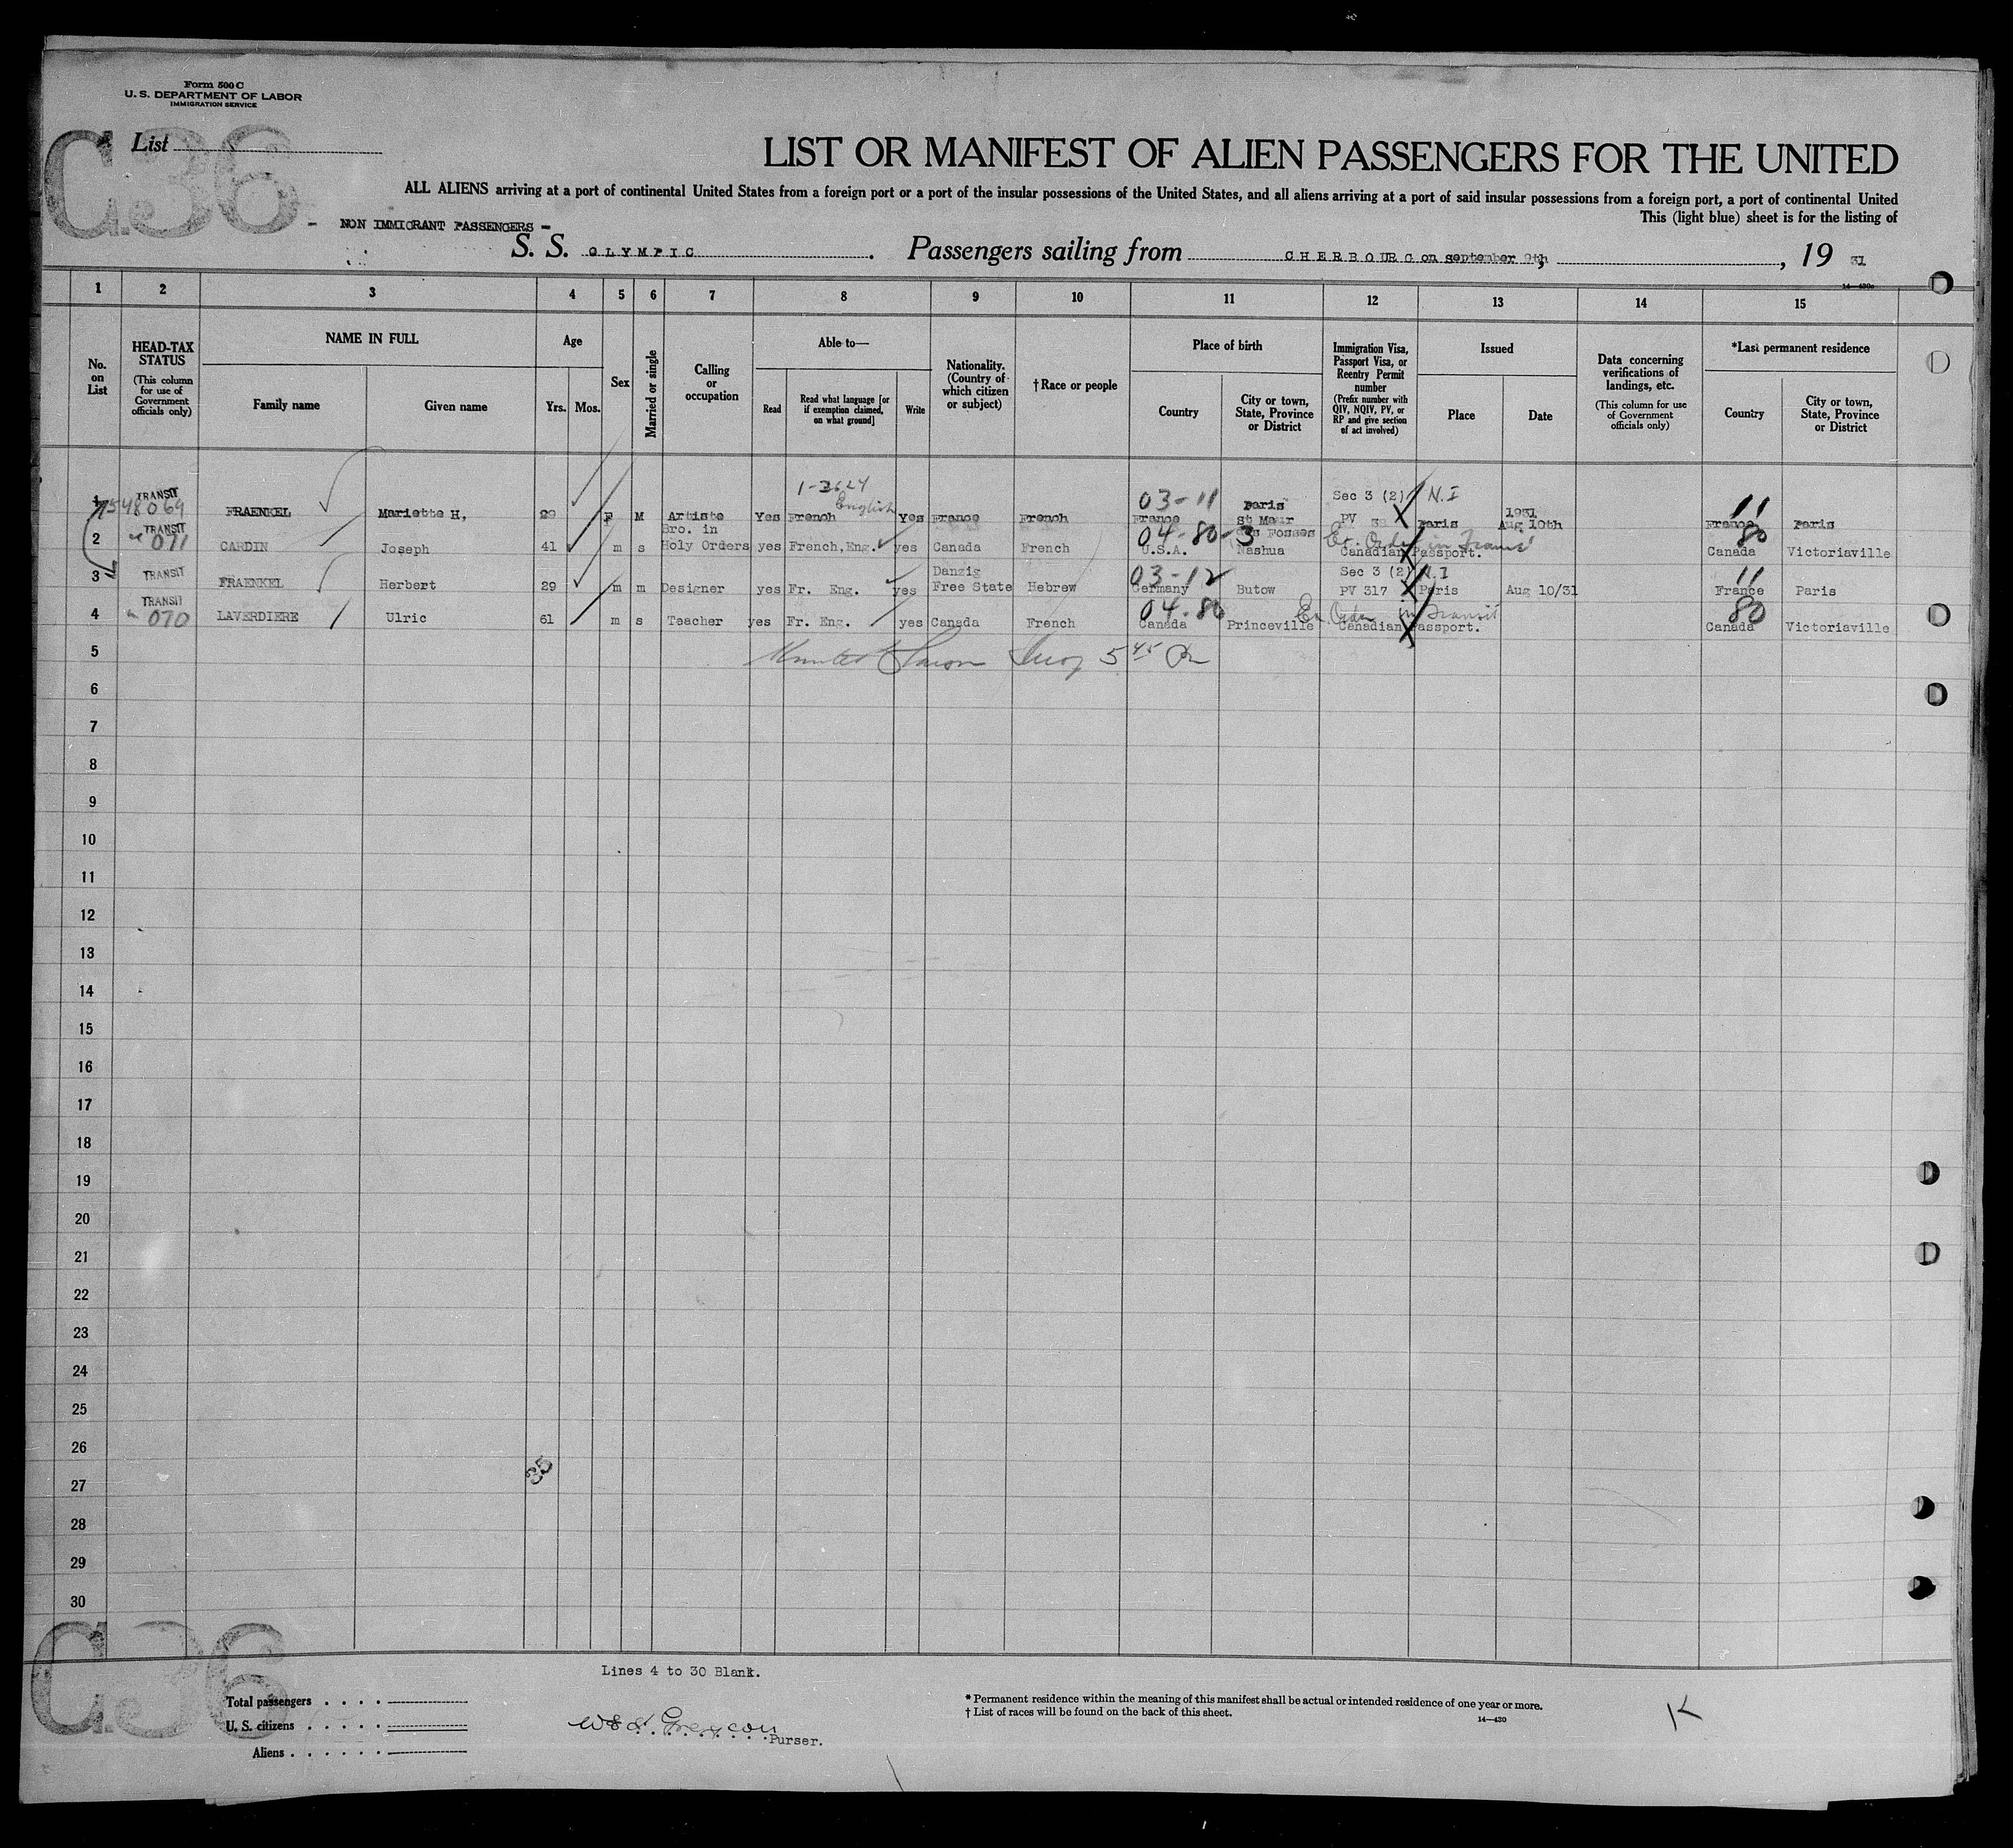 Form 500 C
U. S. DEPARTMENT OF LABOR
IMMIGRATION SERVICE
C.36
List
LIST OR MANIFEST OF ALIEN PASSENGERS FOR THE UNITED
ALL ALIENS arriving at a port of continental United States from a foreign port or a port of the insular possessions of the United States, and all aliens arriving at a port of said insular possessions from a foreign port, a port of continental United
This (light blue) sheet is for the listing of
- NON IMMIGRANT PASSENGERS -
S. S. OLYMPIC. Passengers sailing from CHERBOURG on september 9th, , 19 31
14-430c
1 2 3 4 5 6 7 8 9 10 11 12 13 14 15
No. on List
HEAD-TAX STATUS
(This column for use of Government officials only)
NAME IN FULL
Family name Given name
Age
Yrs. Mos.
Sex
Married or single
Calling or occupation
Able to—
Read Read what language [or if exemption claimed, on what ground] Write
Nationality. (Country of which citizen or subject)
† Race or people
Place of birth
Country City or town, State, Province or District
Immigration Visa, Passport Visa, or Reentry Permit number
(Prefix number with QIV, NQIV, PV, or RP and give section of act involved)
Issued
Place Date
Data concerning verifications of landings, etc.
(This column for use of Government officials only)
*Last permanent residence
Country City or town, State, Province or District
1-3624 03-11 Sec 3 (2) N.I 11
English
1 TRANSIT 7548069 FRAENKEL Mariette H, 29 F M Artiste Yes French Yes France French France Paris St Maur des Fosses PV Paris 1931 Aug 10th France Paris
04-80-3 in Transit 80
2 TRANSIT 071 CARDIN Joseph 41 m s Bro. in Holy Orders yes French, Eng. yes Canada French U.S.A. Nashua Canadian Passport. Canada Victoriaville
03-12 Sec 3 (2) N.I 11
3 TRANSIT FRAENKEL Herbert 29 m m Designer yes Fr. Eng. yes Danzig Free State Hebrew Germany Butow PV 317 Paris Aug 10/31 France Paris
04-80 in Transit 80
4 TRANSIT 070 LAVERDIERE Ulric 61 m s Teacher yes Fr. Eng. yes Canada French Canada Princeville Canadian Passport. Canada Victoriaville
5
6
7
8
9
10
11
12
13
14
15
16
17
18
19
20
21
22
23
24
25
26
27
28
29
30
35
C.36
Lines 4 to 30 Blank.
Total passengers
U. S. citizens
Aliens
Purser.
* Permanent residence within the meaning of this manifest shall be actual or intended residence of one year or more.
† List of races will be found on the back of this sheet.
14-430
K